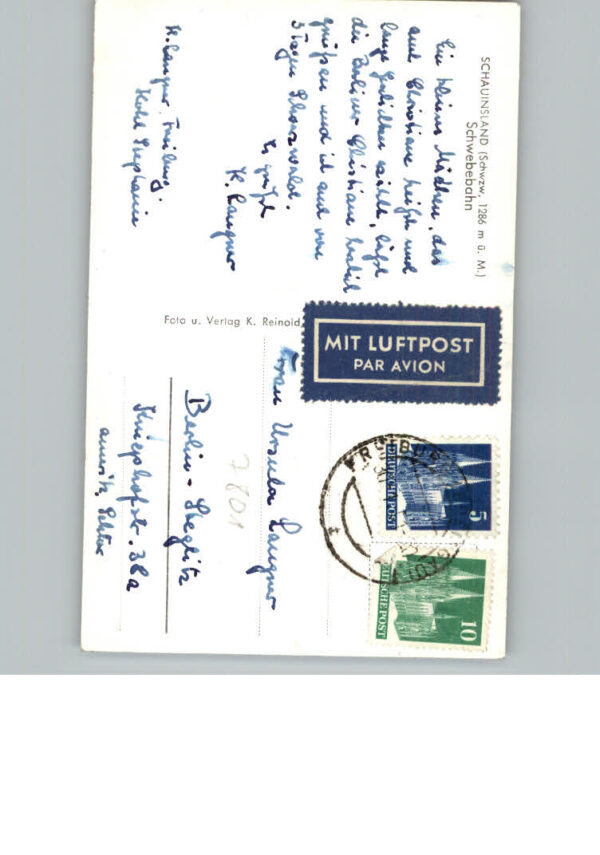 SCHAUINSLAND (Schwzw, 1286 m ü. M.)
Schwebebahn
Ein kleines Mädchen, das
auch Christiane heißt und
lange Zöpfchen, läßt
die Berliner Christiane herzlich
grüßen und ich auch von
3 Tagen Schwarzwald.
Es grüßt
K. Langner
K. Langner, Freiburg
Hotel Stephanie
Foto u. Verlag K. Reinold,
MIT LUFTPOST
PAR AVION
Frau Ursula Langner
Berlin-Steglitz
Kniephofstr. 38a
amerik. Sektor
7801
DEUTSCHE POST
5
DEUTSCHE POST
10